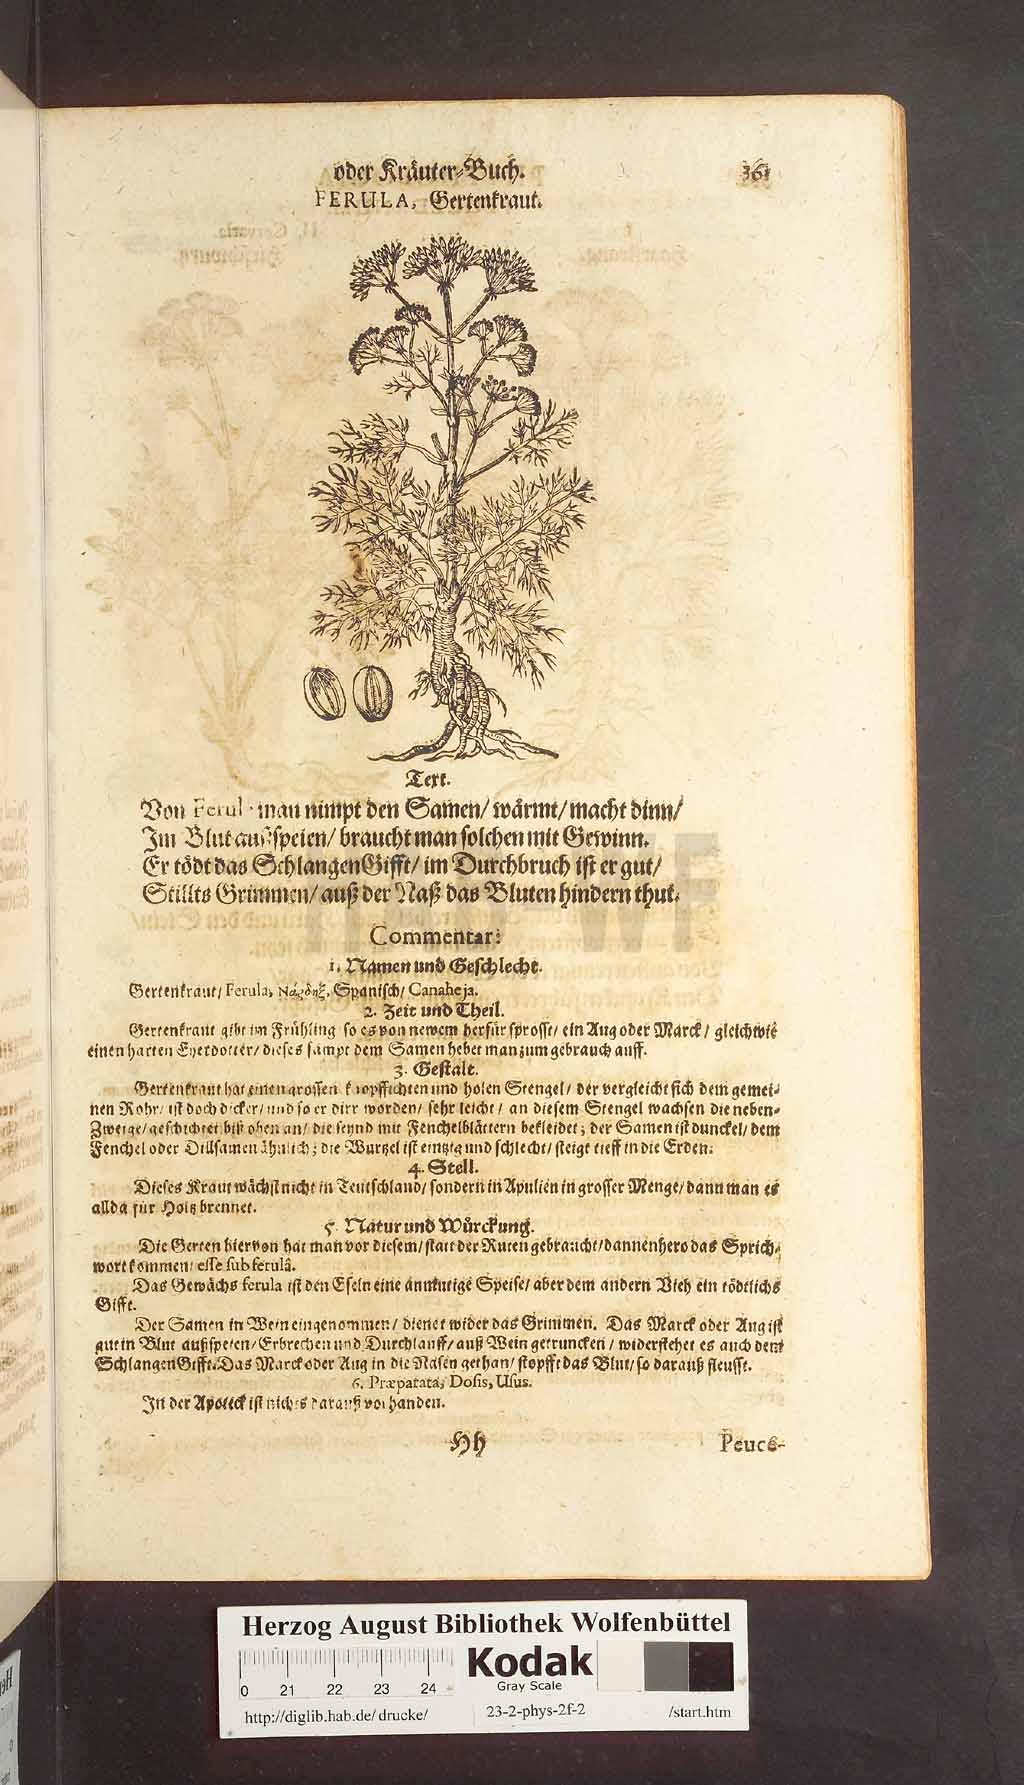 oder Kräuter-Buch. 361
FERULA, Gertenkraut.
Text.
Von Ferul man nimpt den Samen/ wärmt/ macht dinn/
Im Blut außspeien/ braucht man solchen mit Gewinn.
Er tödt das SchlangenGifft/ im Durchbruch ist er gut/
Stillts Grimmen/ auß der Naß das Bluten hindern thut.
Commentar:
1. Namen und Geschlecht.
Gertenkraut/ Ferula, Νάρθηξ, Spanisch/ Canaheja.
2. Zeit und Theil.
Gertenkraut gibt im Frühling so es von newem herfür sprosst/ ein Aug oder Marck/ gleichwie
einen harten Eyerdotter/ dieses sampt dem Samen hebet man zum gebrauch auff.
3. Gestalt.
Gertenkraut hat einen grossen knopffichten und holen Stengel/ der vergleicht sich dem gemei-
nen Rohr/ ist doch dicker/ und so er dirr worden/ sehr leicht/ an diesem Stengel wachsen die neben-
Zweige/ geschichtet biß oben an/ die seynd mit Fenchelblättern bekleidet; der Samen ist dunckel/ dem
Fenchel oder Dillsamen ähnlich; die Wurtzel ist eintzig und schlecht/ steigt tieff in die Erden.
4. Stell.
Dieses Kraut wächst nicht in Teutschland/ sondern in Apulien in grosser Menge/ dann man es
allda für Holtz brennet.
5. Natur und Würckung.
Die Gerten hiervon hat man vor diesem/ statt der Ruten gebraucht/ dannenhero das Sprich-
wort kommen/ esse sub ferulâ.
Das Gewächs ferula ist den Eseln eine anmutige Speise/ aber dem andern Vieh ein tödtlichs
Gifft.
Der Samen in Wein eingenommen/ dienet wider das Grimmen. Das Marck oder Aug ist
gut in Blut außspeien/ Erbrechen und Durchlauff/ auß Wein getruncken/ widerstehet es auch dem
SchlangenGifft. Das Marck oder Aug in die Nasen gethan/ stopfft das Blut/ so darauß fleusst.
6. Præparata, Dosis, Usus.
In der Apoteck ist nichts darauß vorhanden.
Hh Peuce-
HAB-WF
Herzog August Bibliothek Wolfenbüttel
0 21 22 23 24
Kodak
Gray Scale
http://diglib.hab.de/drucke/ 23-2-phys-2f-2 /start.htm